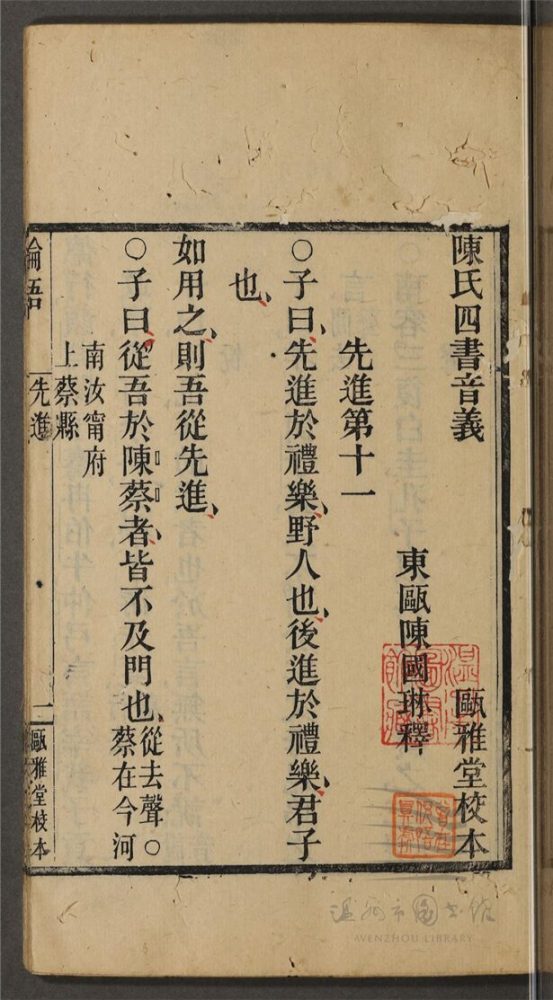 陳氏四書音義
甌雅堂校本
東甌陳國琳釋
先進第十一
○子曰、先進於禮樂、野人也、後進於禮樂、君子
也、
如用之、則吾從先進、
○子曰、從吾於陳蔡者、皆不及門也、從去聲○
蔡在今河
南汝甯府
上蔡縣
論語
先進
二
甌雅堂校本
温州市圖書館
WENZHOU LIBRARY